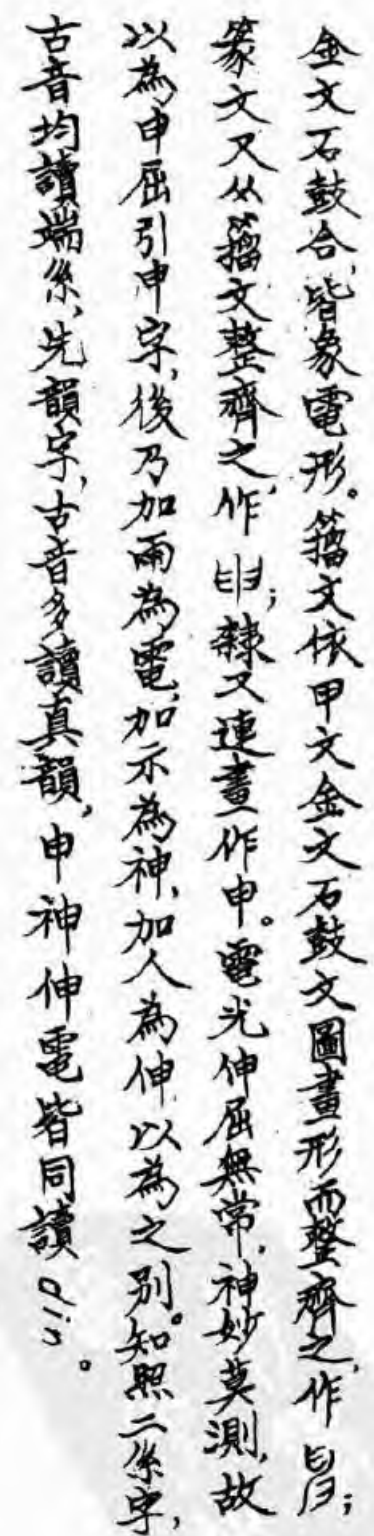 金文石鼓合,皆象電形。籀文依甲文金文石鼓文圖畫形而整齊之,作𢑚;
篆文又从籀文整齊之,作𦥔;隸又連畫作申。電光伸屈無常,神妙莫測,故
以為申屈引申字,後乃加雨為電,加示為神,加人為伸以為之別。知照二系字,
古音均讀端系,先韻字,古音多讀真韻,申神伸電皆同讀din。